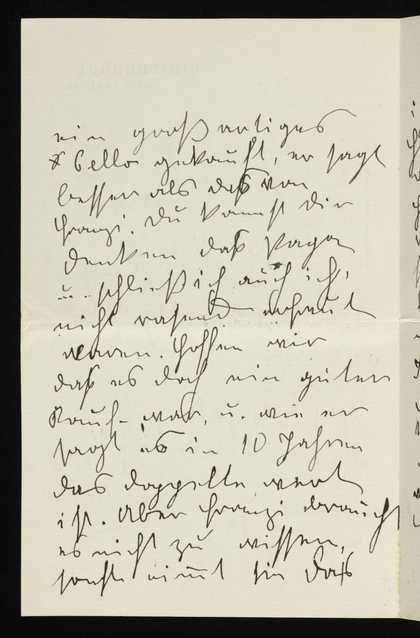 ein großartiges
Cello gekauft, er sagt
besser als das von
Franzi. Du kannst Dir
denken daß Papa
u. schließlich auch ich,
nicht rasend erbaut
waren. Hoffen wir
daß es doch ein guter
Kauf war, u. wie er
sagt es in 10 Jahren
das doppelte wert
ist. Aber Franzi braucht
es nicht zu wissen,
sonst nimmt sie das